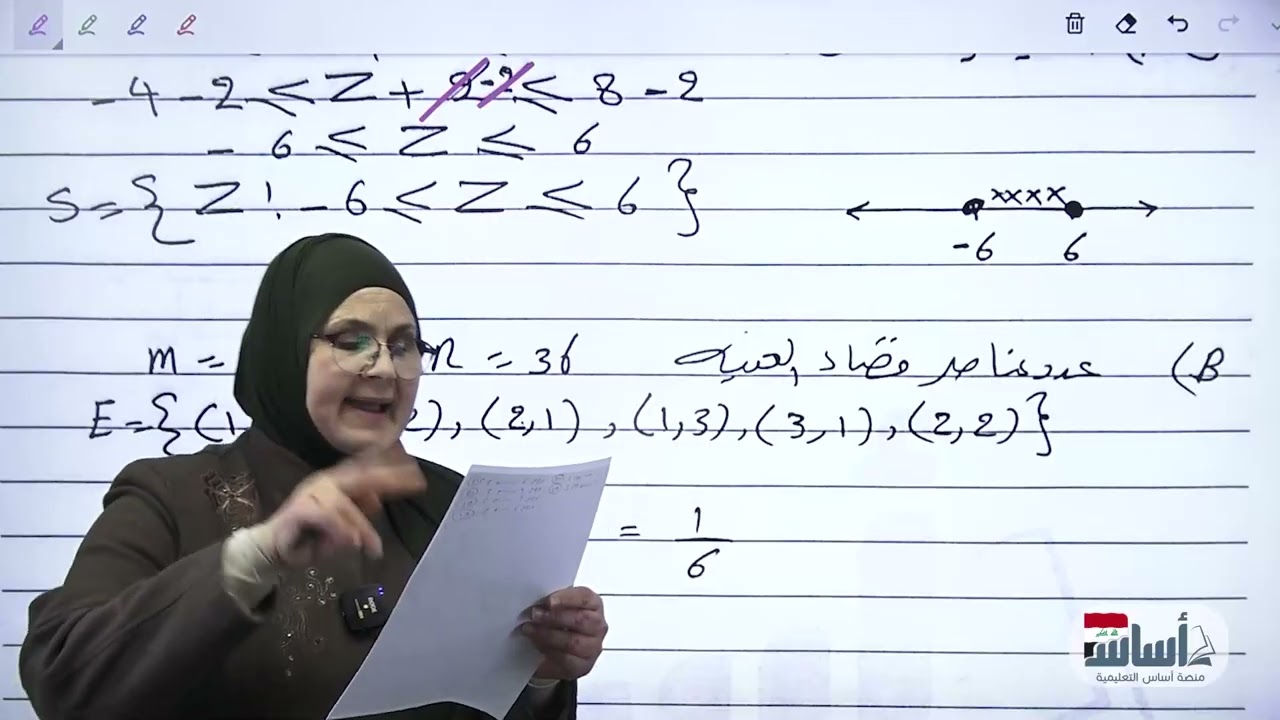 -4 -2 ≤ Z + 2 -2 ≤ 8 - 2
-6 ≤ Z ≤ 6
S = { Z : -6 ≤ Z ≤ 6 }
-6 6
B) عدد عناصر فضاء العينة n = 36 m =
E = { (1, 2), (2,1), (1,3), (3,1), (2,2) }
= 1/6
أساس
منصة أساس التعليمية